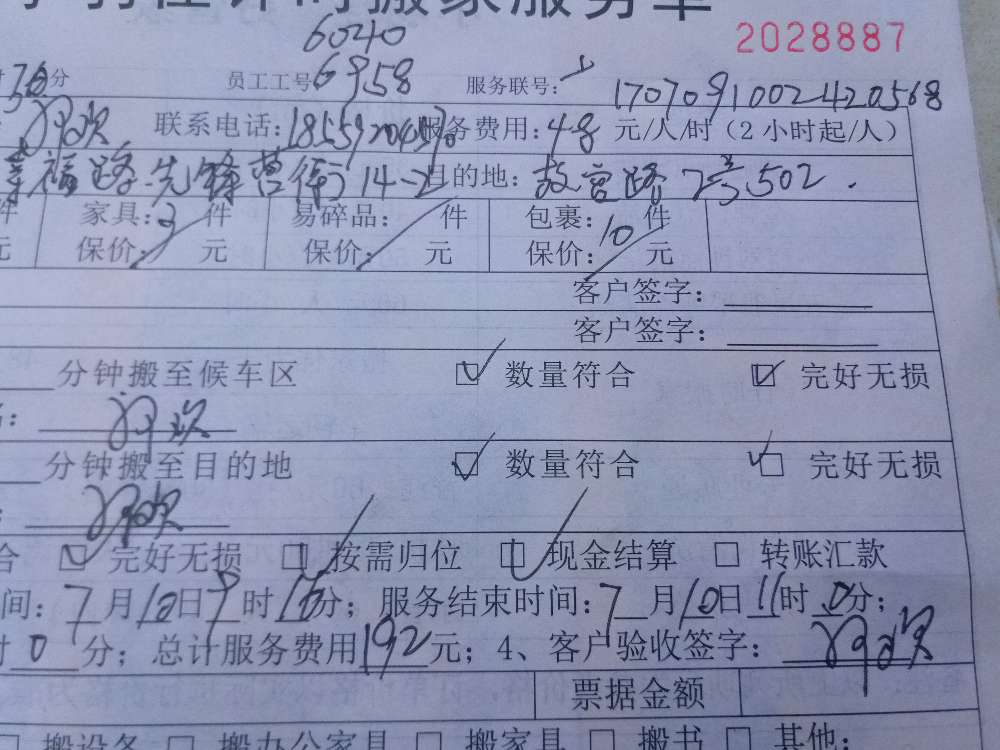 计时搬家服务单
6040
2028887
分 员工工号: 6958 服务联号: 1707091002420568
联系电话: 服务费用: 48 元/人/时（2小时起/人）
福路先锋营街14-2 目的地: 故宫路 502
件 家具: 3 件 易碎品: 件 包裹: 10 件
元 保价: 元 保价: 元 保价: 元
客户签字:
客户签字:
分钟搬至候车区 数量符合 完好无损
分钟搬至目的地 数量符合 完好无损
合 完好无损 按需归位 现金结算 转账汇款
间: 7月10日9时 分; 服务结束时间: 7月10日11时0分;
时0分; 总计服务费用192元; 4、客户验收签字:
票据金额
搬设备 搬办公家具 搬家具 搬书 其他: